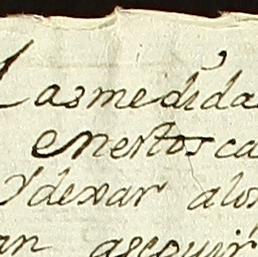 Las medida
en estos ca
Y dexar alos
an asequir